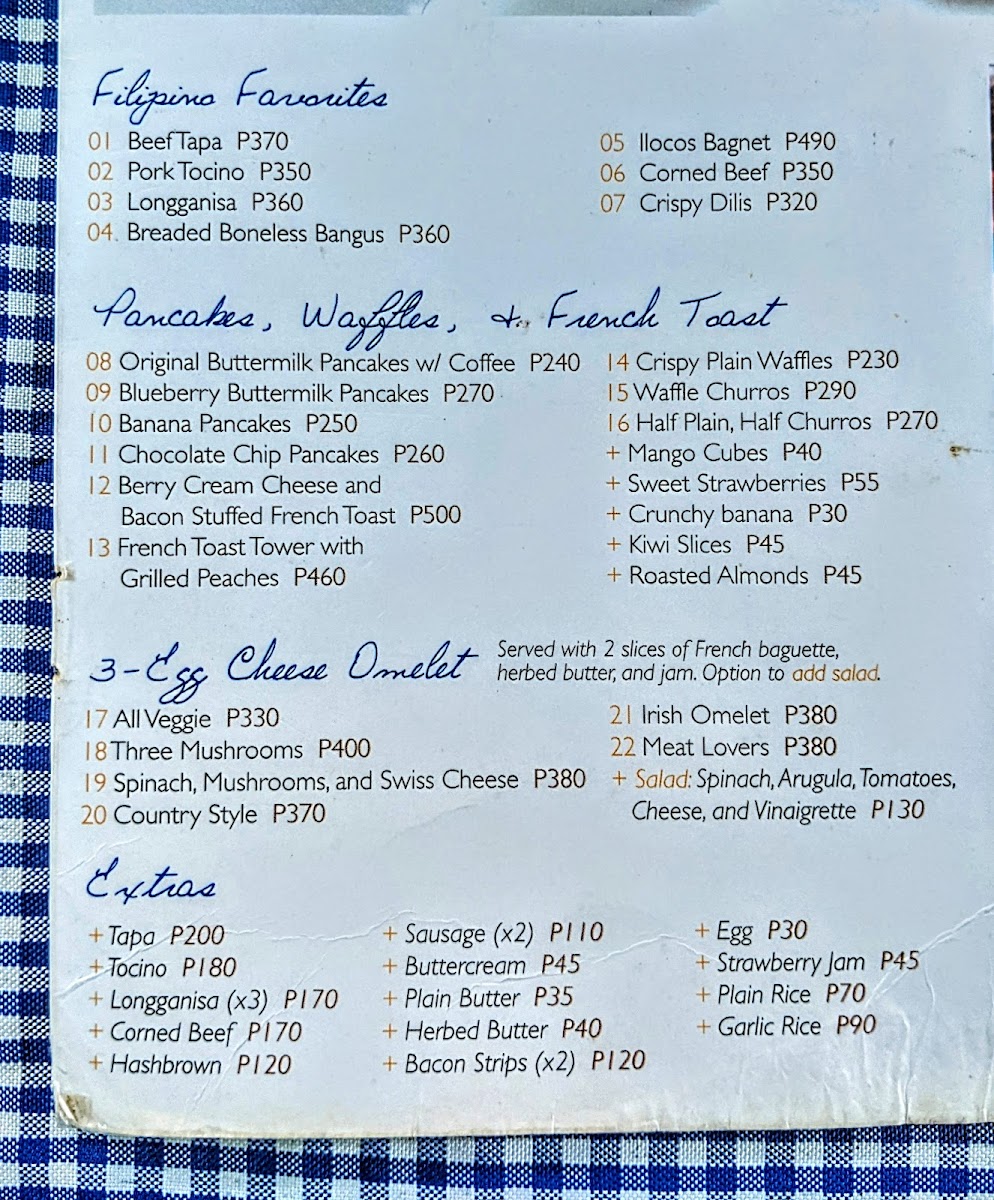 Filipino Favorites
01 Beef Tapa P370
02 Pork Tocino P350
03 Longganisa P360
04. Breaded Boneless Bangus P360
05 Ilocos Bagnet P490
06 Corned Beef P350
07 Crispy Dilis P320
Pancakes, Waffles, & French Toast
08 Original Buttermilk Pancakes w/ Coffee P240
09 Blueberry Buttermilk Pancakes P270
10 Banana Pancakes P250
11 Chocolate Chip Pancakes P260
12 Berry Cream Cheese and
Bacon Stuffed French Toast P500
13 French Toast Tower with
Grilled Peaches P460
14 Crispy Plain Waffles P230
15 Waffle Churros P290
16 Half Plain, Half Churros P270
+ Mango Cubes P40
+ Sweet Strawberries P55
+ Crunchy banana P30
+ Kiwi Slices P45
+ Roasted Almonds P45
3-Egg Cheese Omelet
Served with 2 slices of French baguette,
herbed butter, and jam. Option to add salad.
17 All Veggie P330
18 Three Mushrooms P400
19 Spinach, Mushrooms, and Swiss Cheese P380
20 Country Style P370
21 Irish Omelet P380
22 Meat Lovers P380
+ Salad: Spinach, Arugula, Tomatoes,
Cheese, and Vinaigrette P130
Extras
+ Tapa P200
+ Tocino P180
+ Longganisa (x3) P170
+ Corned Beef P170
+ Hashbrown P120
+ Sausage (x2) P110
+ Buttercream P45
+ Plain Butter P35
+ Herbed Butter P40
+ Bacon Strips (x2) P120
+ Egg P30
+ Strawberry Jam P45
+ Plain Rice P70
+ Garlic Rice P90